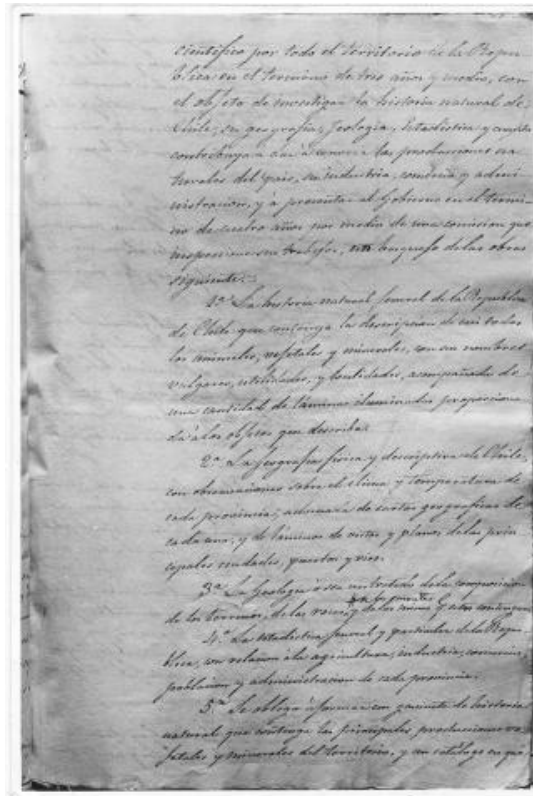 científico por todo el territorio de la Repu
blica en el termino de tres años y medio, con
el objeto de investigar la historia natural de
Chile, su geografia, jeolojia, estadistica y cuanto
contribuya a dar à conocer las producciones na
turales del pais, su industria, comercio y admi
nistracion, y à presentar al Gobierno en el termi
no de cuatro años por medio de una comision que
inspeccione sus trabajos, un bosquejo de las obras
siguientes:
1.a La historia natural jeneral de la Republica
de Chile que contenga la descripcion de casi todos
los animales, vejetales y minerales, con sus nombres
vulgares, utilidades, y localidades, acompañada de
una cantidad de laminas iluminadas proporciona
da à los objetos que describa.
2.a La jeografia fisica y descriptiva de Chile,
con observaciones sobre el clima y temperatura de
cada provincia, adornada de cartas geograficas de
cada una, y de laminas de vistas y planos de las prin
cipales ciudades, puertos y rios.
3.a La jeolojia ò sea un tratado de la composicion
de los terrenos, de las rocas y de las minas
4.a La estadistica jeneral y particular de la Repu
blica, con relacion à la agricultura, industria, comercio,
poblacion y administracion de cada provincia.
5.a Se obliga à formar un gavinete de historia
natural que contenga las principales producciones ve
jetales y minerales del territorio, y un catálogo en que